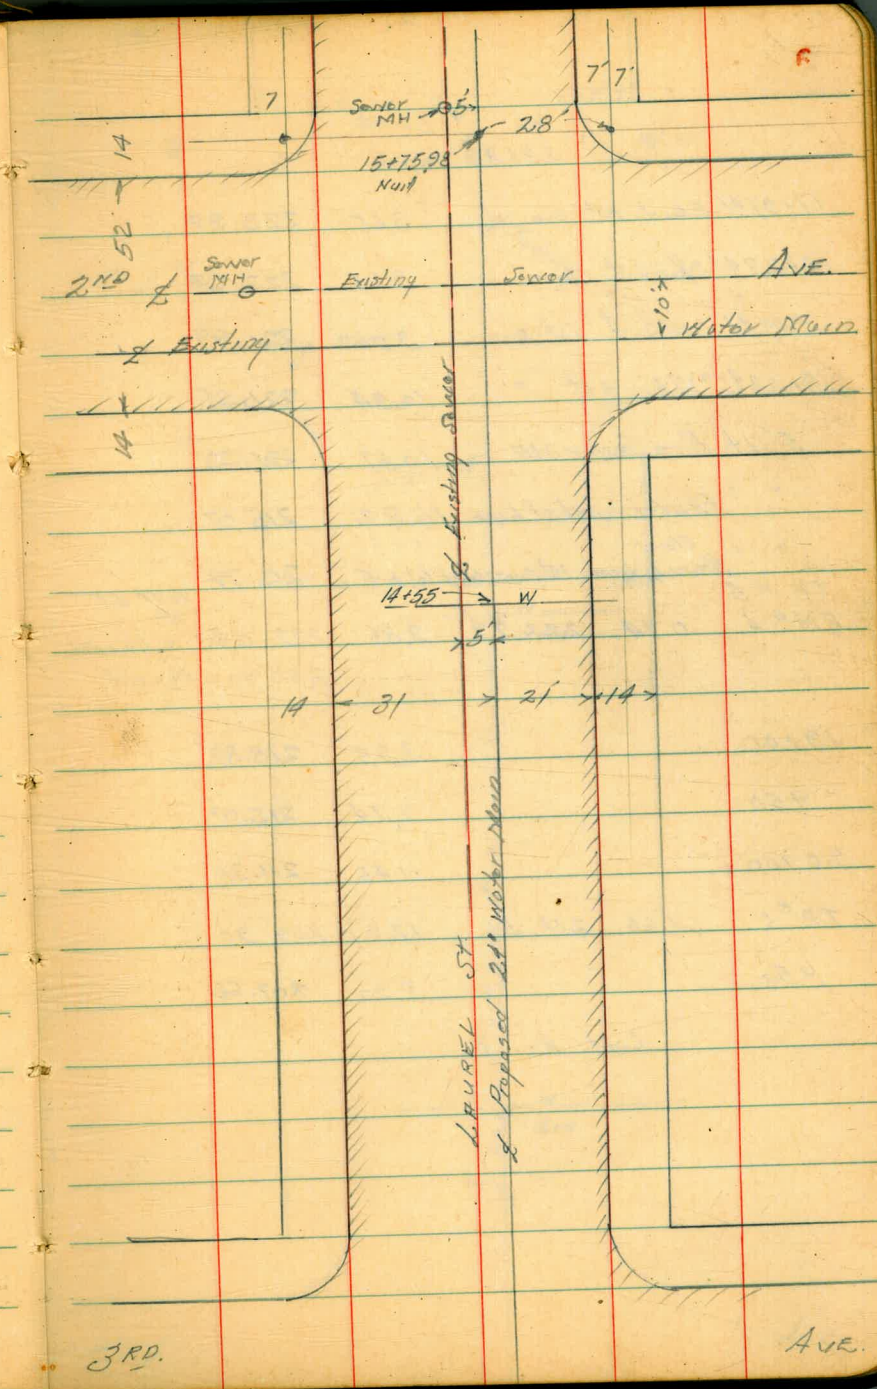 6
7
7' 7'
Sewer
MH
5'
28'
14
15+75.98
Nail
52
2ND ℄
Sewer
MH
Existing Sewer
AVE.
10'
℄ Existing Water Main
14
℄ Existing Sewer
14+55
W
5'
14 31 21' 14
LAUREL St.
℄ Proposed 24" Water Main
3RD. AVE.